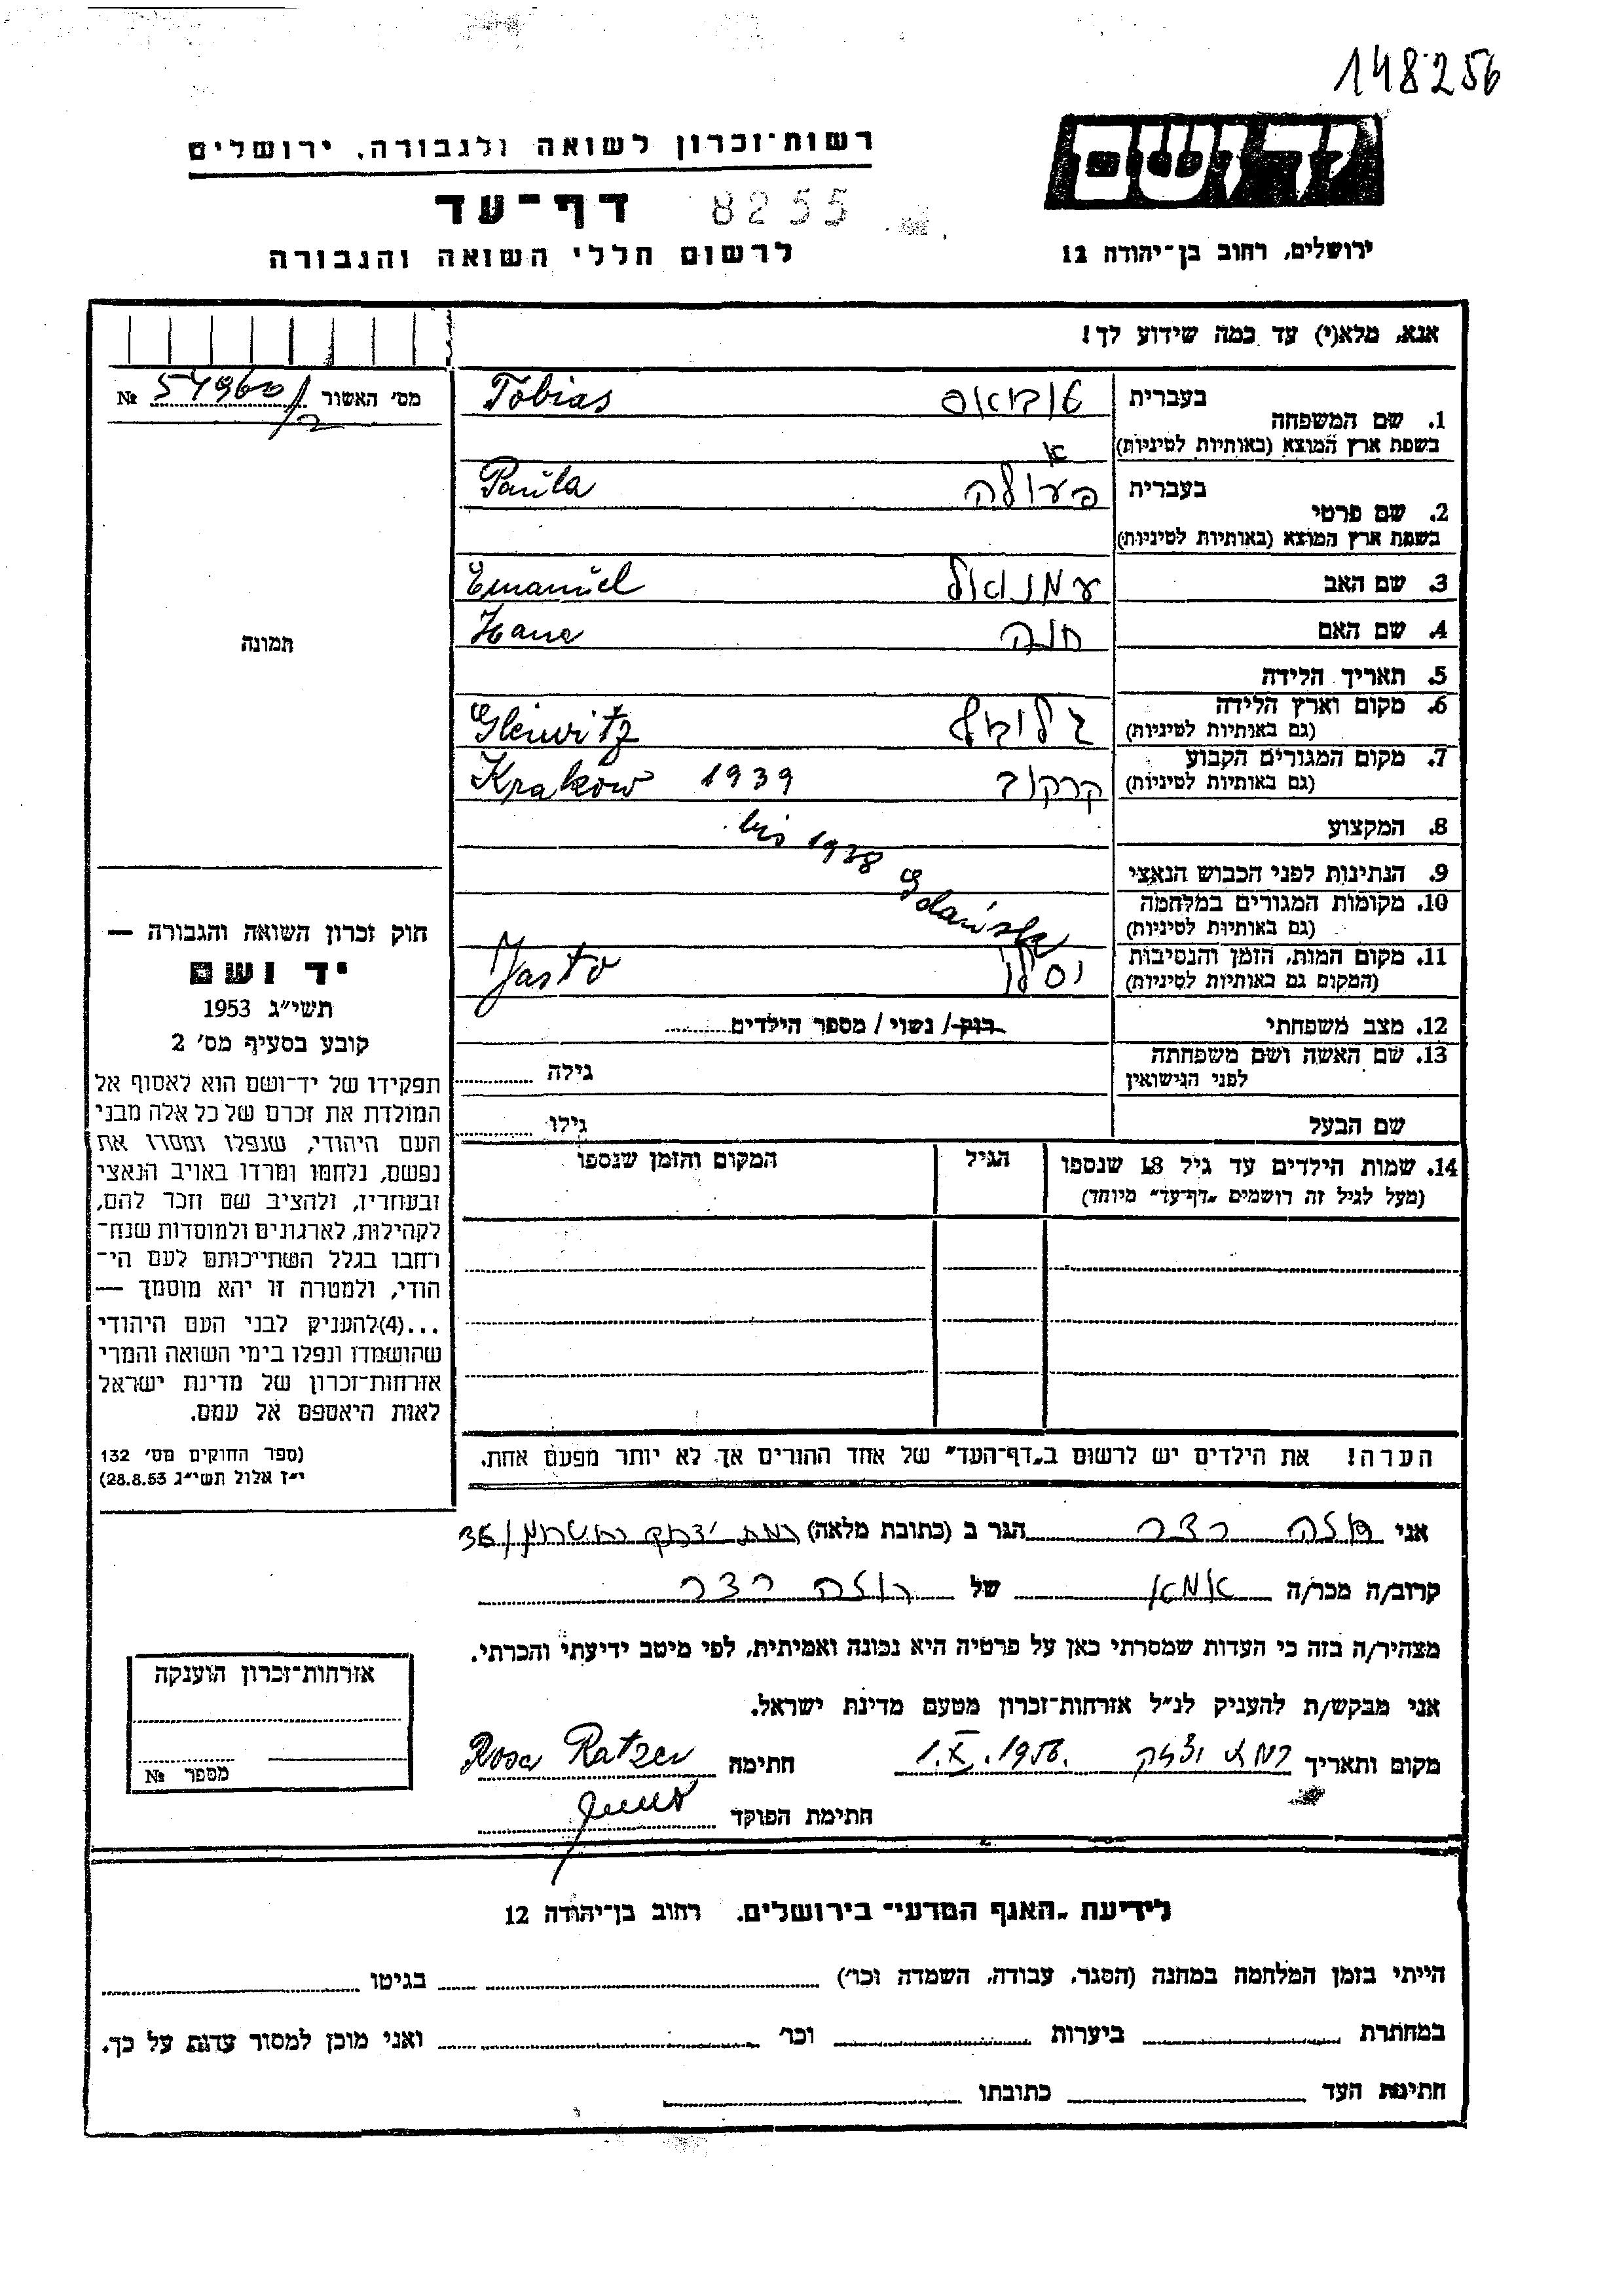 148256
רשות־זכרון לשואה ולגבורה, ירושלים
יד ושם
דף־עד 8255
לרשום חללי השואה והגבורה
ירושלים, רחוב בן־יהודה 12
אנא, מלא(י) עד כמה שידוע לך!
מס׳ האשור 54960/2 №
1. שם המשפחה
בעברית טוביאס Tobias
בשפת ארץ המוצא (באותיות לטיניות)
2. שם פרטי
בעברית פאולה Paula
בשפת ארץ המוצא (באותיות לטיניות)
3. שם האב עמנואל Emanuel
4. שם האם חנה Hane
5. תאריך הלידה
6. מקום וארץ הלידה Gleiwitz
(גם באותיות לטיניות)
7. מקום המגורים הקבוע קרקוב Krakow 1939
(גם באותיות לטיניות)
8. המקצוע
bis 1938 Gdańsk
9. הנתינות לפני הכבוש הנאצי
10. מקומות המגורים במלחמה
(גם באותיות לטיניות)
11. מקום המות, הזמן והנסיבות יסלו Jasło
(המקום גם באותיות לטיניות)
12. מצב משפחתי רוק / נשוי / מספר הילדים
13. שם האשה ושם משפחתה
לפני הנישואין
גילה
שם הבעל גילו
14. שמות הילדים עד גיל 18 שנספו הגיל המקום והזמן שנספו
(מעל לגיל זה רושמים „דף־עד״ מיוחד)
הערה! את הילדים יש לרשום ב„דף־העד״ של אחד ההורים אך לא יותר מפעם אחת.
תמונה
חוק זכרון השואה והגבורה —
יד ושם
תשי״ג 1953
קובע בסעיף מס׳ 2
תפקידו של יד־ושם הוא לאסוף אל
המולדת את זכרם של כל אלה מבני
העם היהודי, שנפלו ומסרו את
נפשם, נלחמו ומרדו באויב הנאצי
ובעוזריו, ולהציב שם וזכר להם,
לקהילות, לארגונים ולמוסדות שנח־
רחבו בגלל השתייכותם לעם הי־
הודי, ולמטרה זו יהא מוסמך —
...(4)להעניק לבני העם היהודי
שהושמדו ונפלו בימי השואה והמרי
אזרחות־זכרון של מדינת ישראל
לאות היאספם אל עמם.
(ספר החוקים מס׳ 132
י״ז אלול תשי״ג 28.8.53)
אני רוזה רצר הגר ב (כתובת מלאה) רמת יצחק 36
קרוב/ה מכר/ה אמא של רוזה רצר
מצהיר/ה בזה כי העדות שמסרתי כאן על פרטיה היא נכונה ואמיתית, לפי מיטב ידיעתי והכרתי.
אני מבקש/ת להעניק לנ״ל אזרחות־זכרון מטעם מדינת ישראל.
מקום ותאריך רמת יצחק 1.X.1956. חתימה Rosa Ratzer
חתימת הפוקד
אזרחות־זכרון הוענקה
מספר №
לידיעת „האגף המדעי״ בירושלים. רחוב בן־יהודה 12
הייתי בזמן המלחמה במחנה (הסגר, עבודה, השמדה וכו׳) בגיטו
במחתרת ביערות וכו׳ ואני מוכן למסור עדות על כך.
חתימת העד כתובתו